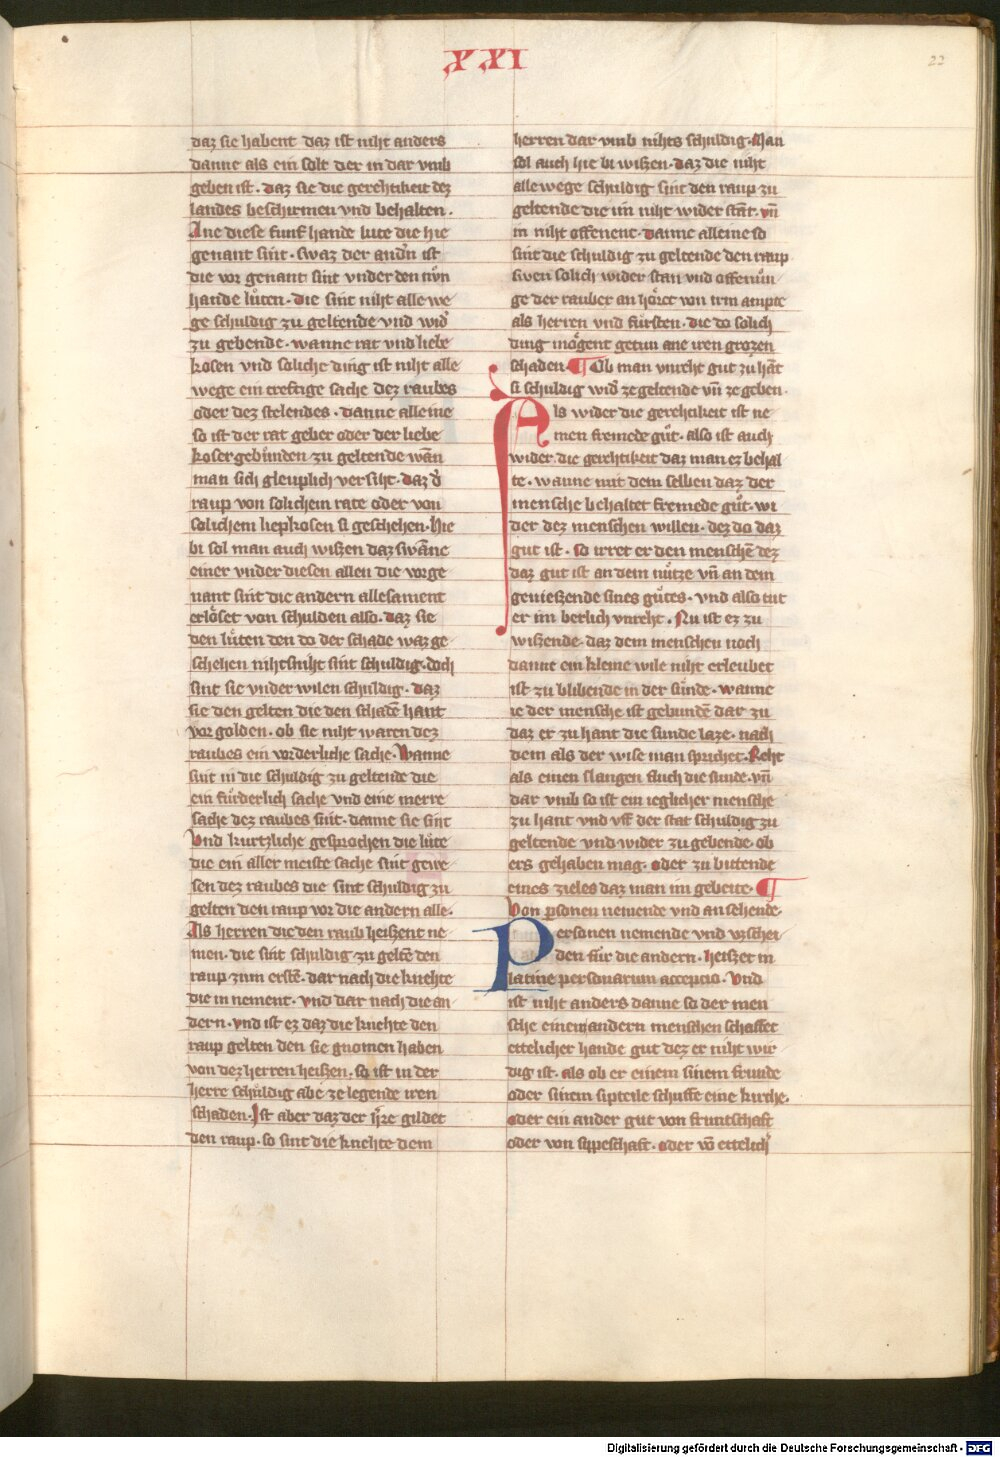 XXI
22
daz sie habent daz ist niht anders
danne als ein solt der in dar vmb
geben ist. daz sie die gerehtikeit dez
landes beschirmen vnd behalten.
Ane diese funf hande lute die hie
genant sint. swaz der andn̄ ist
die vor genant sint vnder den nv̍n
hande lu̍ten. die sint niht alle we
ge schuldig zu geltende vnd wid̛
zu gebende. wanne rat vnd liebe
kosen vnd soliche ding ist niht alle
wege ein creftige sache dez raubes
oder dez stelendes. danne alleine
so ist der rat geber oder der liebe
koser gebunden zu geltende wan̄
man sich gleuplich versiht. daz d̛
raup von solichem rate oder von
solichem liepkosen si geschehen. hie
bi sol man auch wiszen daz swan̄e
einer vnder diesen allen die vorge
nant sint die andern allesament
erlo̍set von schulden also. daz sie
den lu̍ten den do der schade waz ge
schehen nihtsniht sint schuldig. doch
sint sie vnder wilen schuldig. daz
sie den gelten die den schadē hant
vor golden. ob sie niht waren dez
raubes ein vorderliche sache. Wanne
sint in die schuldig zu geltende die
ein fu̍rderlich sache vnd eine merre
sache dez raubes sint. danne sie sint
Vnd kurtzliche gesprochen die lu̍te
die ein aller meiste sache sint gewe
sen dez raubes die sint schuldig zu
gelten den raup vor die andern alle.
Als herren die den raub heiszent ne
men. die sint schuldig zu geltē den
raup zum erstē. dar nach die knehte
die in nement. vnd dar nach die an
dern. vnd ist ez daz die knehte den
raup gelten den sie gnomen haben
von dez herren heiszen. so ist in der
herre schuldig abe ze legende iren
schaden. Ist aber daz der h̛re gildet
den raup. so sint die knehte dem
herren dar vmb nihts schuldig. Man
sol auch hie bi wiszen. daz die niht
alle wege schuldig sint den raup zu
geltende die im niht wider stāt. vn̄
in niht offenent. danne alleine so
sint die schuldig zu geltende den raup
swen solich wider stan vnd offenūn
ge der rauber an ho̍rte von irm ampte
als herren vnd fu̍rsten. die do solich
ding mo̍gent getun ane iren grozen
schaden. ¶ Ob man vnreht gut zu hāt
si schuldig wid̛ ze geltende vn̄ ze geben.
Als wider die gerehtikeit ist ne
men fremede gu̍t. also ist auch
wider die gerehtikeit daz man ez behal
te. wanne mit dem selben daz der
mensche behalter fremede gu̍t. wi
der dez menschen willen. dez do daz
gut ist. so irret er den menschē dez
daz gut ist an dem nu̍tze vn̄ an dem
genieszende sines gu̍tes. vnd also tut
er im berlich vnreht. Nu ist ez zu
wiszende. daz dem menschen noch
danne ein kleine wile niht erleubet
ist zu blibende in der su̍nde. wanne
ie der mensche ist gebundē dar zu
daz er zu hant die sunde laze. nach
dem als der wise man sprichet. Reht
als einen slangen fluch die sunde. vn̄
dar vmb so ist ein ieglicher mensche
zu hant vnd vff der stat schuldig zu
geltende vnd wider zu gebende. ob
ers gehaben mag. oder zu bittende
eines zieles daz man im gebeite. ¶
Von psonen nemende vnd ansehende.
Personen nemende vnd vzschei
den fu̍r die andern. heiszet in
latine personarum acceptio. Vnd
ist niht anders danne so der men
sche einem andern menschen schaffet
ettelicher hande gut dez er niht wir
dig ist. als ob er einem sinem frunde
oder sinem sipteile schuffe eine kirche.
oder ein ander gut von fruntschaft
oder von sippeschaft. oder vō ettelich̛
Digitalisierung gefördert durch die Deutsche Forschungsgemeinschaft - DFG